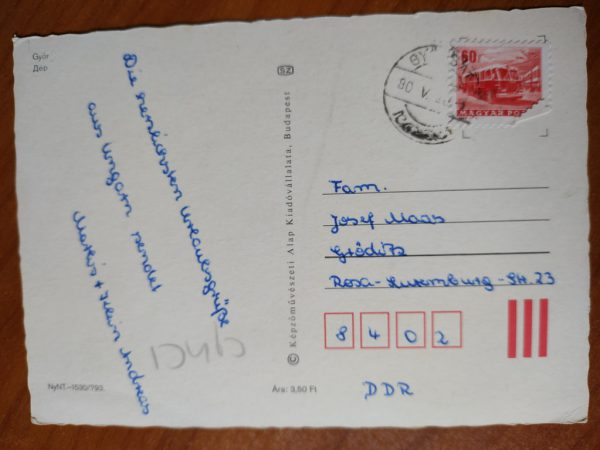 Győr
Дёр
Die herzlichsten Urlaubsgrüße
aus Ungarn sendet
Andreas
NyNT.–1590/793.
SZ
© Képzőművészeti Alap Kiadóvállalata, Budapest
Ára: 3,60 Ft
60
MAGYAR PO
80 V.
Fam.
Josef Maas
Gröditz
Rosa-Luxemburg-Str. 23
8402
DDR